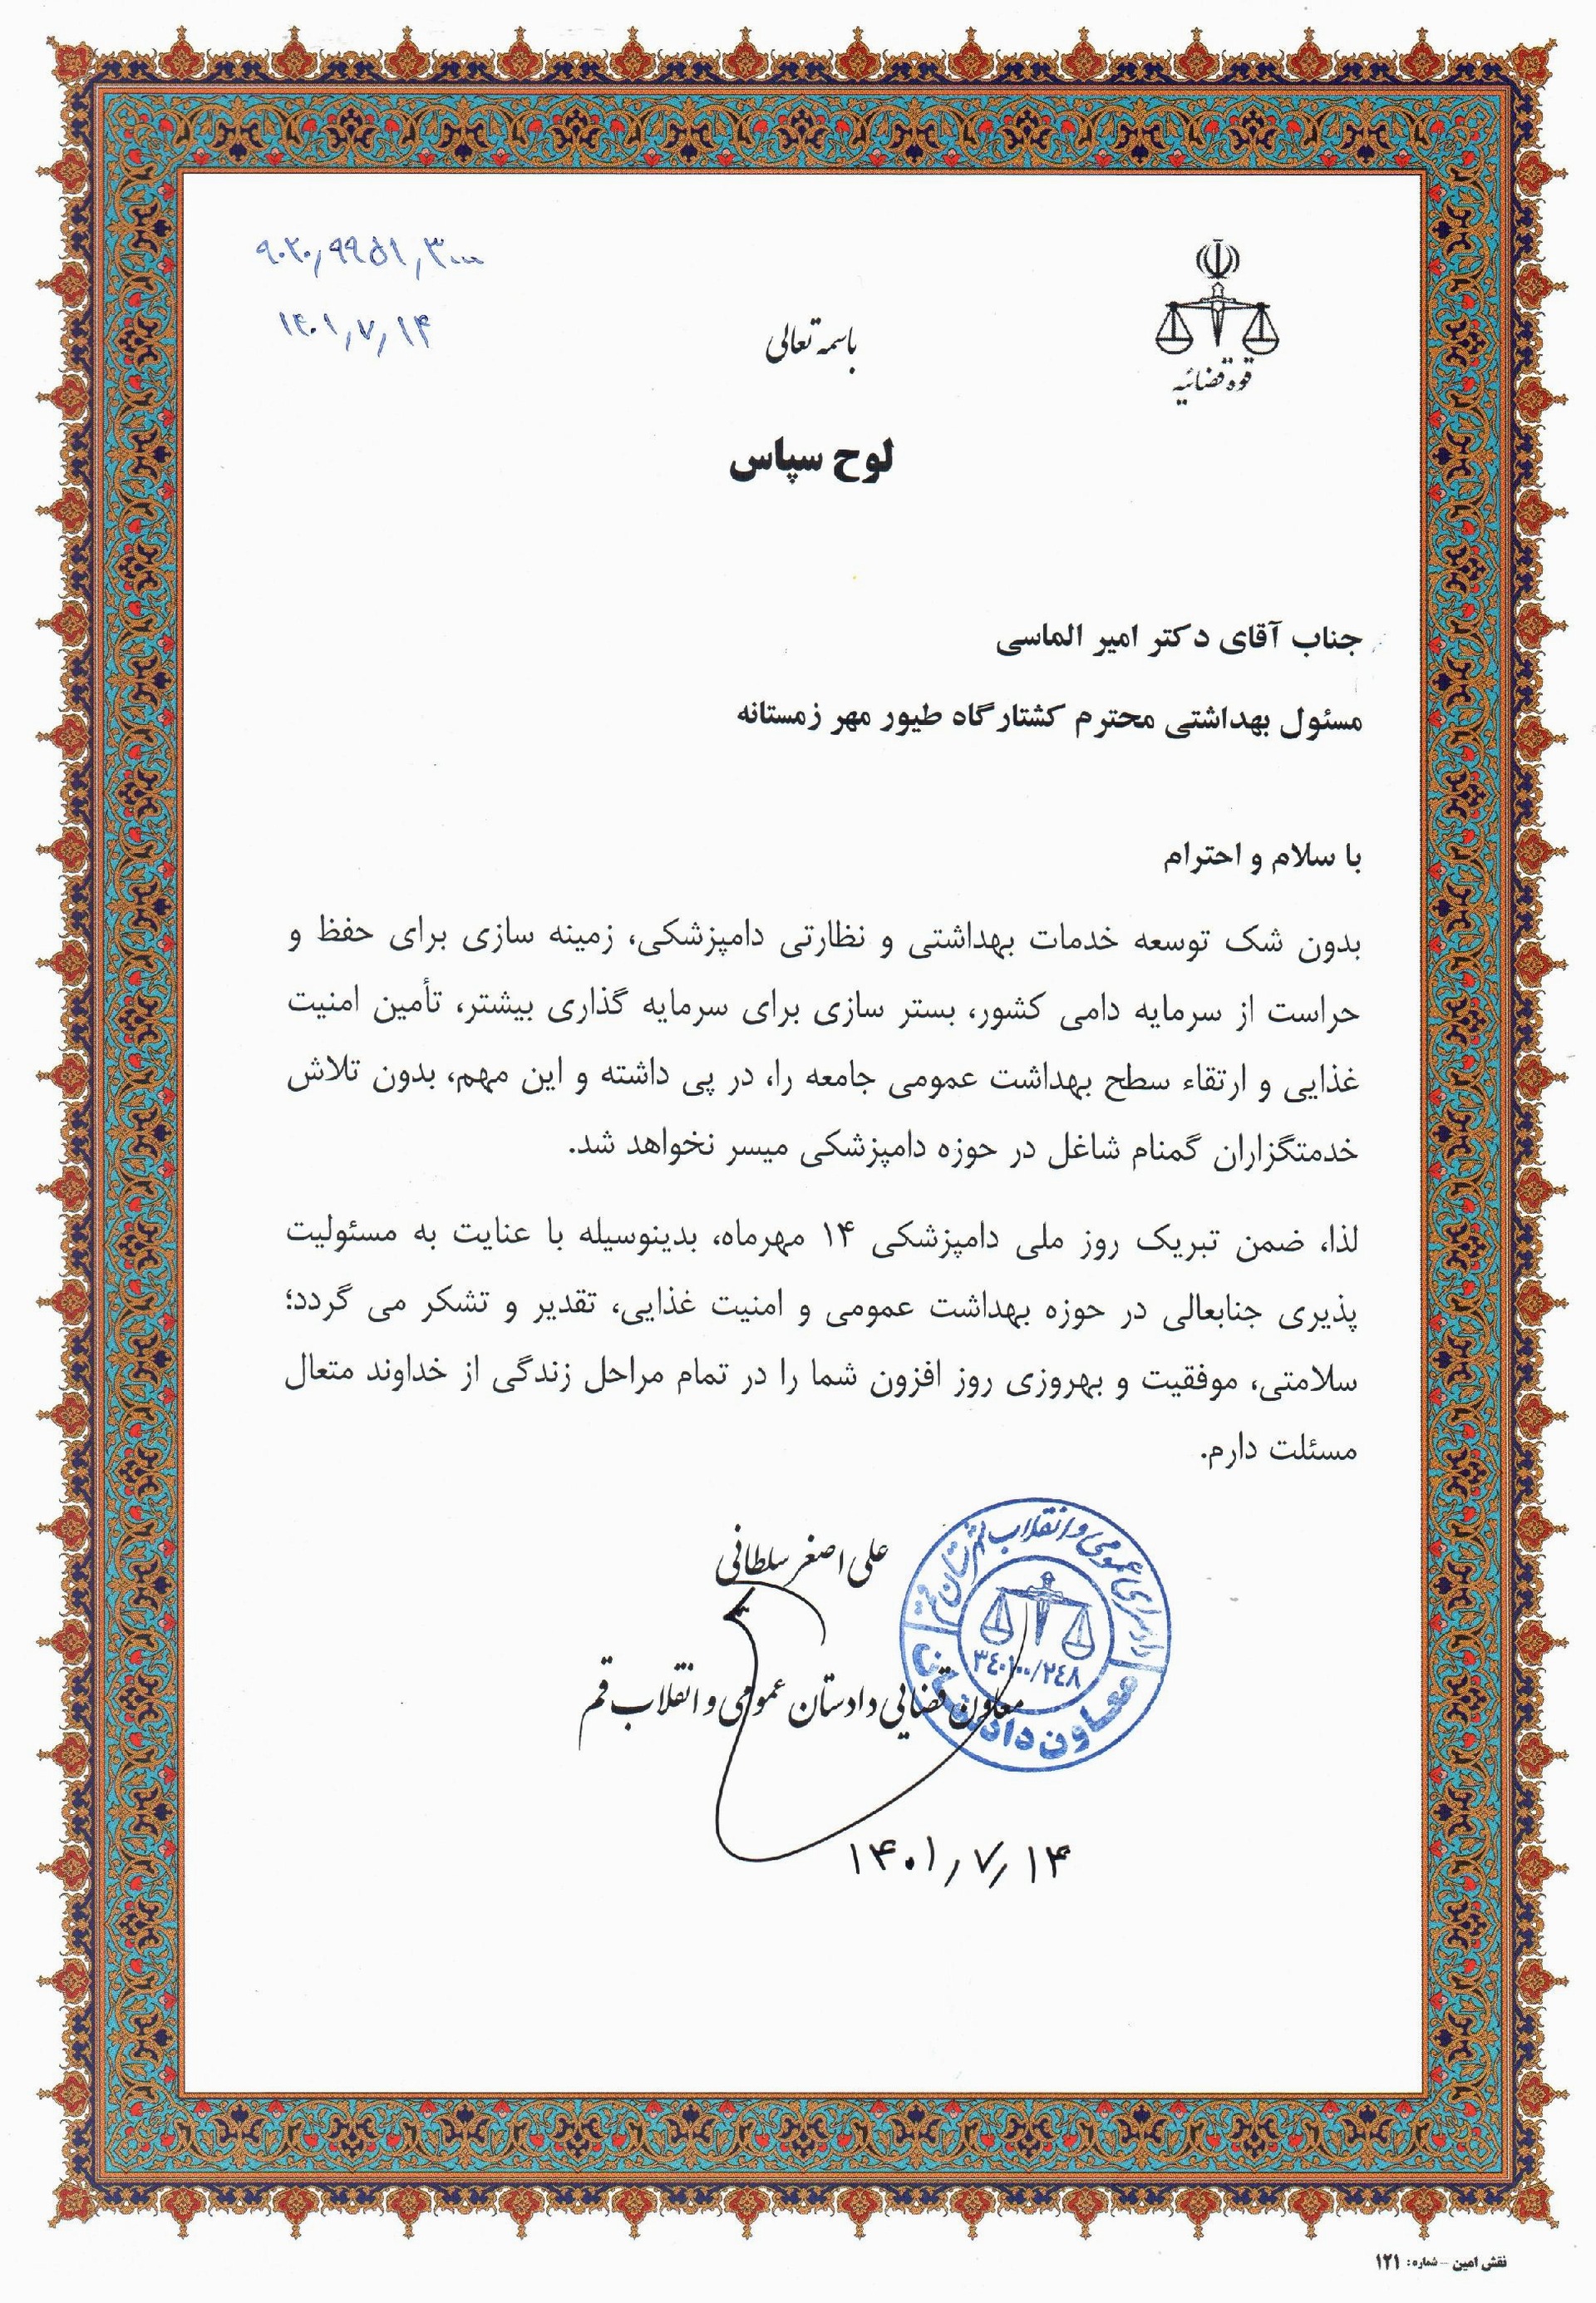 ۹۰۲۰/۹۹۵۱/۳۰۰۰
۱۴۰۱/۷/۱۴
قوه قضائیه
باسمه تعالی
لوح سپاس
جناب آقای دکتر امیر الماسی
مسئول بهداشتی محترم کشتارگاه طیور مهر زمستانه
با سلام و احترام
بدون شک توسعه خدمات بهداشتی و نظارتی دامپزشکی، زمینه سازی برای حفظ و
حراست از سرمایه دامی کشور، بستر سازی برای سرمایه گذاری بیشتر، تأمین امنیت
غذایی و ارتقاء سطح بهداشت عمومی جامعه را، در پی داشته و این مهم، بدون تلاش
خدمتگزاران گمنام شاغل در حوزه دامپزشکی میسر نخواهد شد.
لذا، ضمن تبریک روز ملی دامپزشکی ۱۴ مهرماه، بدینوسیله با عنایت به مسئولیت
پذیری جنابعالی در حوزه بهداشت عمومی و امنیت غذایی، تقدیر و تشکر می گردد؛
سلامتی، موفقیت و بهروزی روز افزون شما را در تمام مراحل زندگی از خداوند متعال
مسئلت دارم.
علی اصغر سلطانی
معاون قضایی دادستان عمومی و انقلاب قم
دادسرای عمومی و انقلاب شهرستان قم
۳۴۰۱۰۰/۲۴۸
معاون دادستان
۱۴۰۱/۷/۱۴
نقش امین - شماره: ۱۲۱